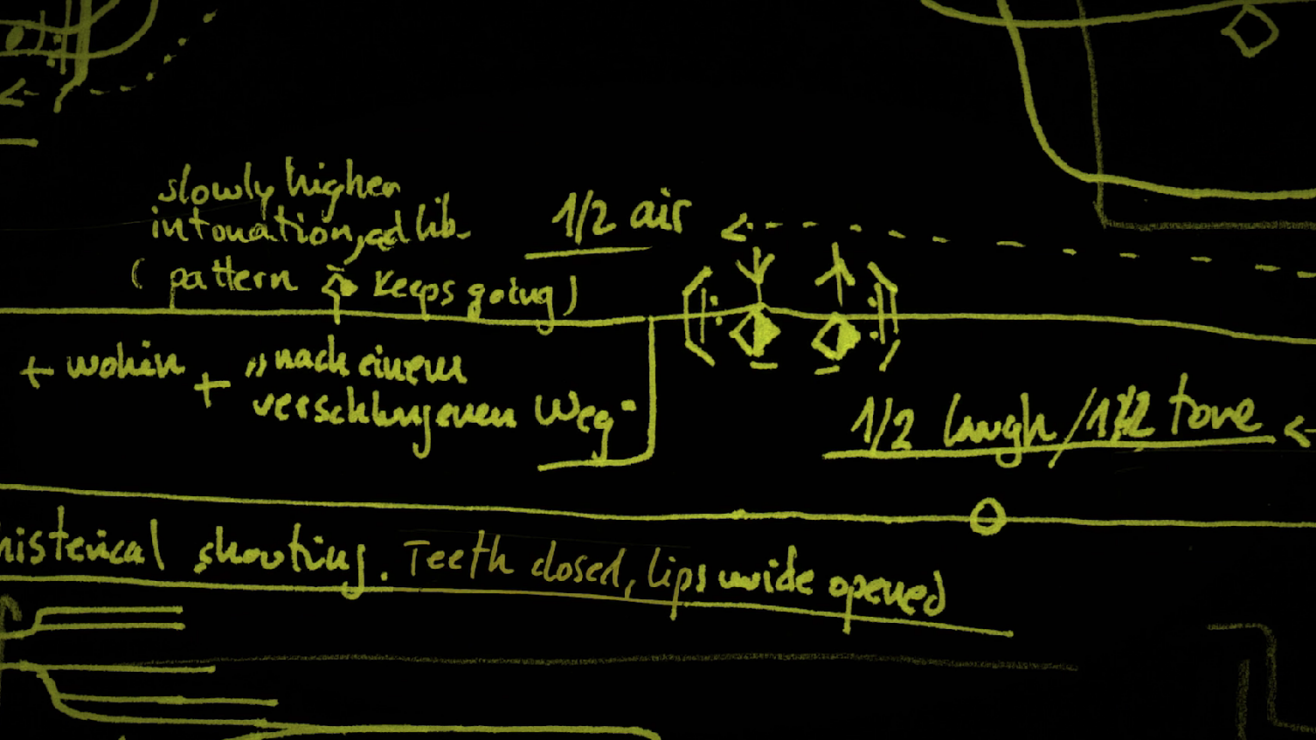 slowly higher
intonation, ad lib.
1/2 air
( pattern keeps going )
+ wohin + „nach einem
verschlungenen Weg"
1/2 laugh / 1/2 tone
histerical shouting. Teeth closed, lips wide opened